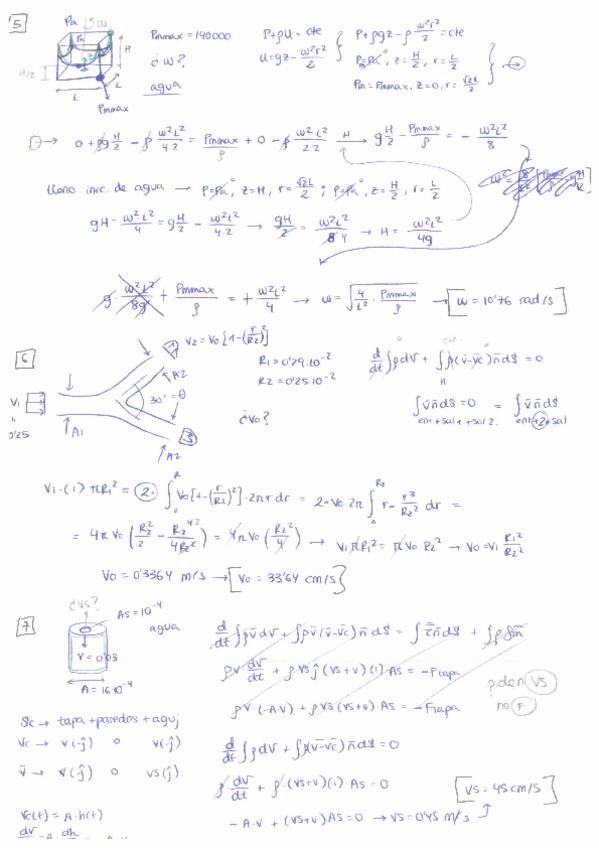 5
Pa
ω
Pmmax = 140000
P + ρU = cte
U = gz - ω²r²/2
P + ρgz - ρ ω²r²/2 = cte
¿ω?
agua
z = H/2, r = L/2
Pm = Pmmax, z = 0, r = √2L/2
H/2
H
L
L
Pmmax
0 + ρg H/2 - ρ ω²L²/4·2 = Pmmax/ρ + 0 - ρ ω²L²/2·2 → g H/2 - Pmmax/ρ = - ω²L²/8
lleno inic. de agua → P = Pa, z = H, r = √2L/2 ; P = Pa, z = H/2, r = L/2
gH - ω²L²/4 = g H/2 - ω²L²/4·2 → gH/2 = ω²L²/8 4 → H = ω²L²/4g
g · ω²L²/8g + Pmmax/ρ = + ω²L²/4 → ω = √(4/L² · Pmmax/ρ) → [ω = 10'76 rad/s]
6
V2 = V0 [1-(r/R2)²]
R1 = 0'79·10⁻²
R2 = 0'25·10⁻²
d/dt ∫ρdV + ∫ρ(v̄-v̄c)n̄dS = 0
V1
"
0'25
A1
A2
A2
30° = θ
¿V0?
∫v̄n̄dS = 0 = ∫v̄n̄dS
ent + sal + sal 2. ent + 2 · sal
V1·(1) πR1² = 2· ∫ V0[1-(r/R2)²]·2πr dr = 2·V0·2π ∫ r - r³/R2² dr =
= 4πV0 (R2²/2 - R2⁴/4R2²) = 4πV0 (R2²/4) → V1πR1² = πV0 R2² → V0 = V1 R1²/R2²
V0 = 0'3364 m/s → [V0 = 33'64 cm/s]
7
¿VS?
AS = 10⁻⁴
agua
V = 0'03
A = 16·10⁻⁴
d/dt ∫ρv̄dV + ∫ρv̄(v̄-v̄c)n̄dS = ∫τn̄dS + ∫ρfm
ρV dv/dt + ρVSĵ(VS+V)(1)·AS = -Ftapa
ρV·(-A·V) + ρVS(VS+V)AS = -Ftapa
piden VS
no F
Sc → tapa + paredes + aguj
Vc → V(-ĵ) 0 V(-ĵ)
v̄ → V(-ĵ) 0 VS(ĵ)
d/dt ∫ρdV + ∫ρ(v̄-v̄c)n̄dS = 0
ρ dV/dt + ρ·(VS+V)(1)·AS = 0
[VS = 45 cm/s]
Vc(t) = A·h(t)
-A·V + (VS+V)AS = 0 → VS = 0'45 m/s